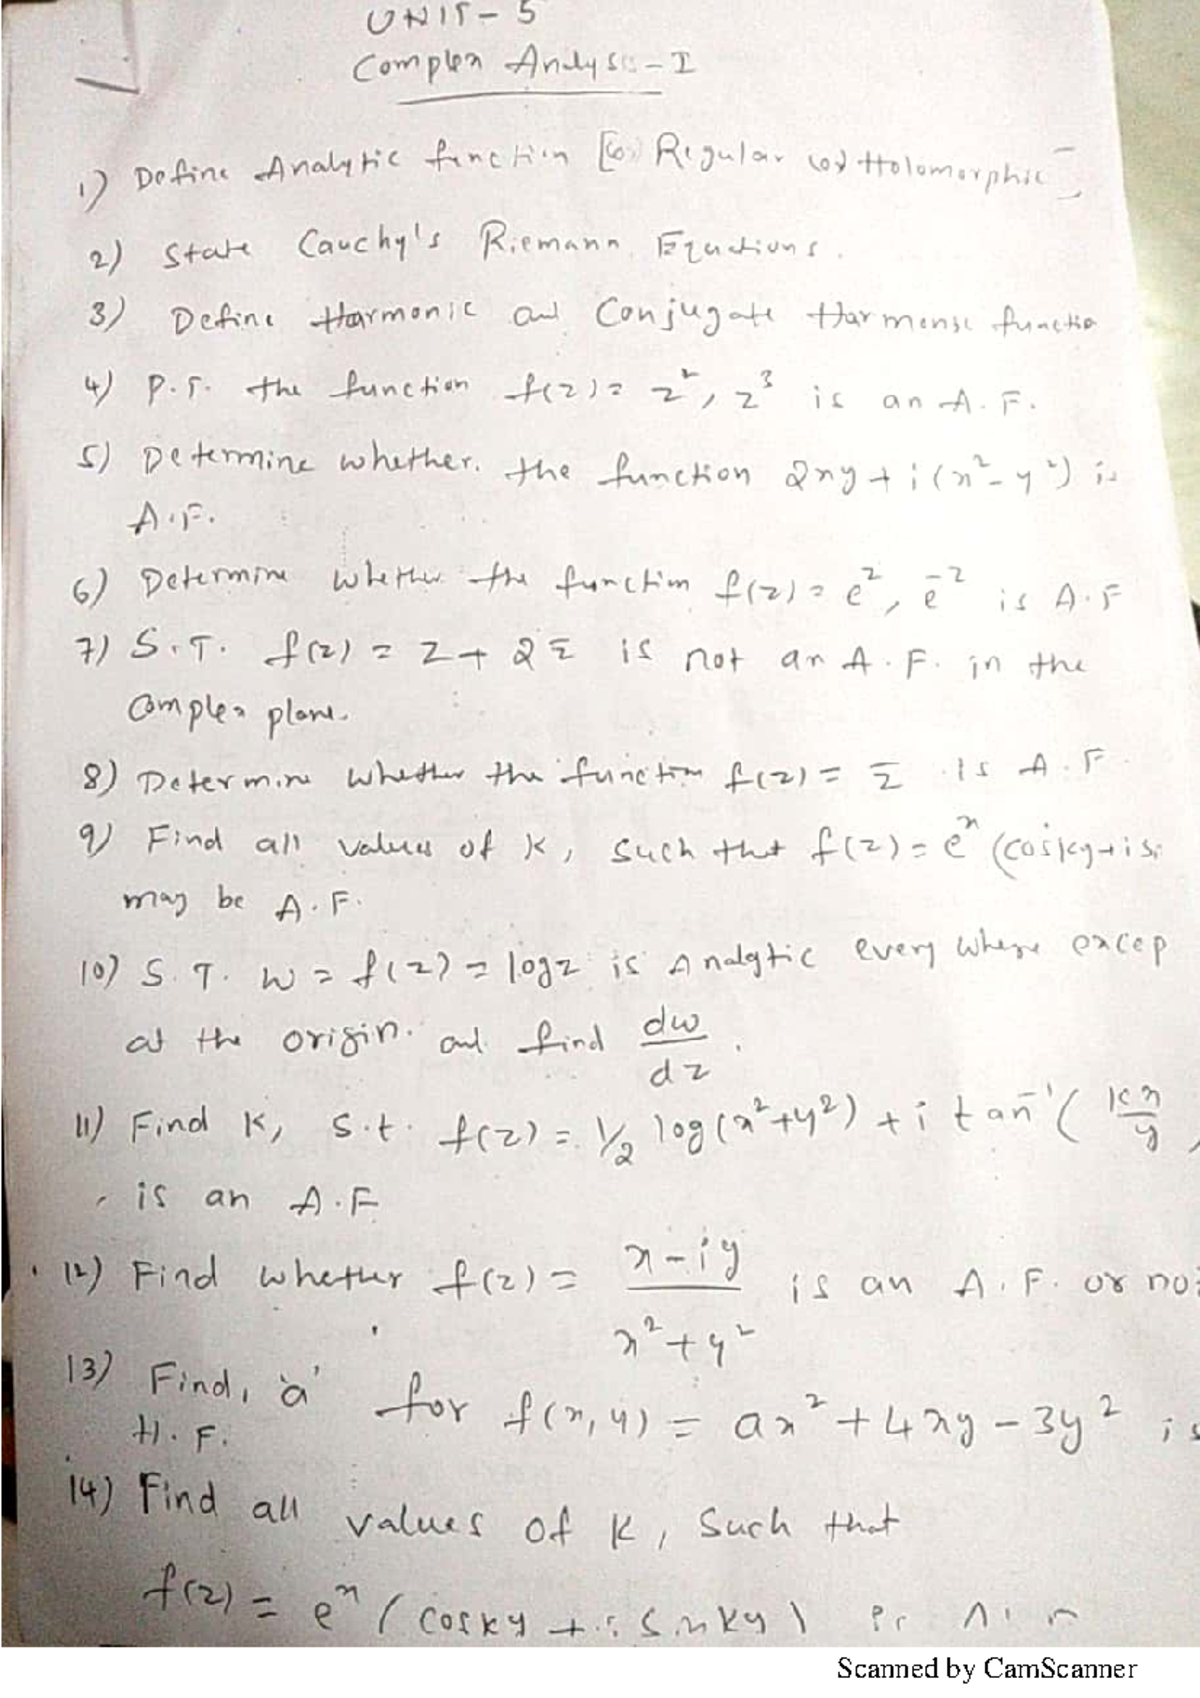 UNIT - 5
Complex Analysis - I
1) Define Analytic function [(or) Regular (or) Holomorphic]
2) State Cauchy's Riemann Equations.
3) Define Harmonic and Conjugate Harmonic functio
4) P.T. the function f(z) = z², z³ is an A.F.
5) Determine whether the function 2xy + i(x² - y²) is
A.F.
6) Determine whether the function f(z) = e^z, e^-z is A.F
7) S.T. f(z) = z + 2z̅ is not an A.F. in the
Complex plane.
8) Determine whether the function f(z) = z̅ is A.F.
9) Find all values of K, such that f(z) = e^x (cosky + i si
may be A.F.
10) S.T. W = f(z) = logz is Analytic every where excep
at the origin. and find dw/dz.
11) Find K, s.t. f(z) = 1/2 log(x² + y²) + i tan⁻¹( kx/y
is an A.F
12) Find whether f(z) = x - iy / x² + y² is an A.F. or not
13) Find, 'a' for f(x,y) = ax² + 4xy - 3y² is
H.F.
14) Find all values of K, Such that
f(z) = e^x (cosky + i sinky)
Scanned by CamScanner